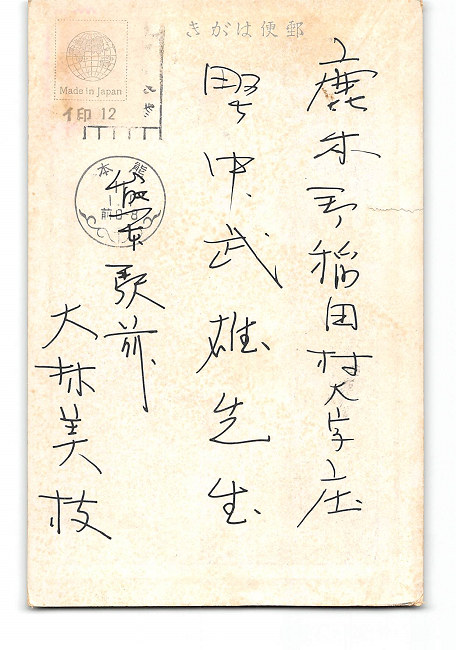 郵便はがき
Made in Japan
イ印 12
熊本
前0-8
鹿本郡稲田村大字庄
野中武雄先生
駅前
大林美枝